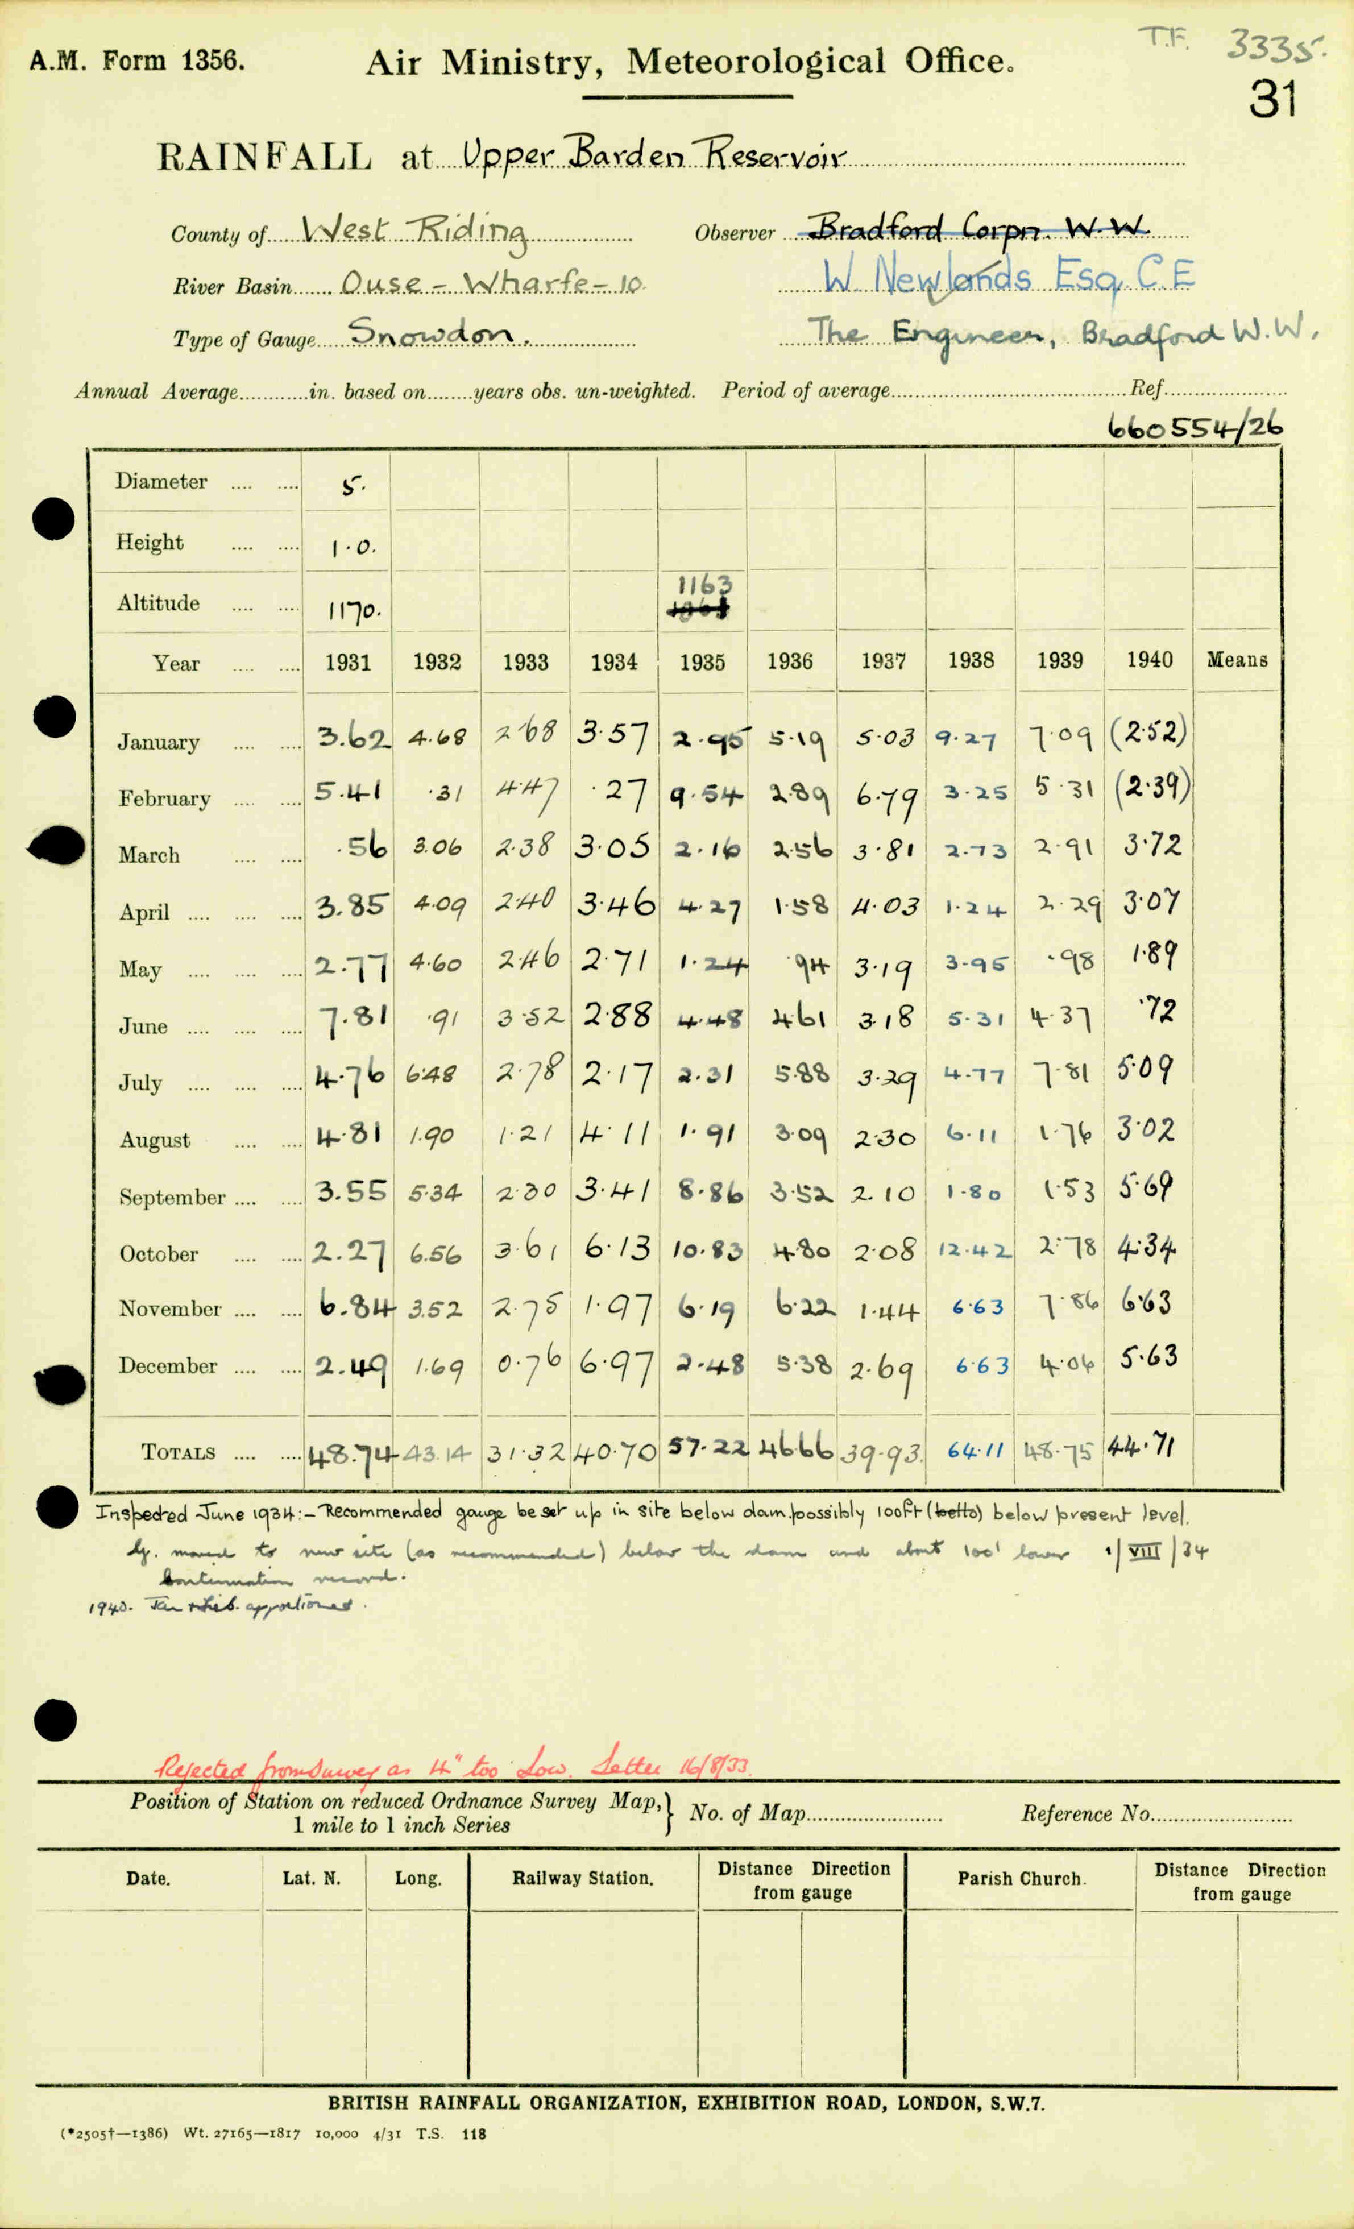 T.F. 3335.
A.M. Form 1356. Air Ministry, Meteorological Office.
31
RAINFALL at Upper Barden Reservoir
County of West Riding Observer Bradford Corpn. W.W.
River Basin Ouse - Wharfe - 10 W. Newlands Esq. C.E
Type of Gauge Snowdon. The Engineer, Bradford W.W.
Annual Average in. based on years obs. un-weighted. Period of average Ref.
660554/26
Diameter 5.
Height 1.0.
1163
Altitude 1170.
Year 1931 1932 1933 1934 1935 1936 1937 1938 1939 1940 Means
January 3.62 4.68 2.68 3.57 2.95 5.19 5.03 9.27 7.09 (2.52)
February 5.41 .31 4.47 .27 9.54 2.89 6.79 3.25 5.31 (2.39)
March .56 3.06 2.38 3.05 2.16 2.56 3.81 2.73 2.91 3.72
April 3.85 4.09 2.40 3.46 4.27 1.58 4.03 1.24 2.29 3.07
May 2.77 4.60 2.46 2.71 1.24 .94 3.19 3.95 .98 1.89
June 7.81 .91 3.52 2.88 4.48 4.61 3.18 5.31 4.37 .72
July 4.76 6.48 2.78 2.17 2.31 5.88 3.29 4.77 7.81 5.09
August 4.81 1.90 1.21 4.11 1.91 3.09 2.30 6.11 1.76 3.02
September 3.55 5.34 2.30 3.41 8.86 3.52 2.10 1.80 1.53 5.69
October 2.27 6.56 3.61 6.13 10.83 4.80 2.08 12.42 2.78 4.34
November 6.84 3.52 2.75 1.97 6.19 6.22 1.44 6.63 7.86 6.63
December 2.49 1.69 0.76 6.97 2.48 5.38 2.69 6.63 4.06 5.63
TOTALS 48.74 43.14 31.32 40.70 57.22 46.66 39.93. 64.11 48.75 44.71
Inspected June 1934:- Recommended gauge be set up in site below dam possibly 100ft (betto) below present level.
Eg. moved to new site (as recommended) below the dam and about 100' lower 1/VIII/34
Continuation record.
1940. Jan & Feb. apportioned.
Rejected from Survey as 4" too Low. Letter 16/8/33.
Position of Station on reduced Ordnance Survey Map, } No. of Map Reference No.
1 mile to 1 inch Series
Date. Lat. N. Long. Railway Station. Distance Direction from gauge Parish Church. Distance Direction from gauge
BRITISH RAINFALL ORGANIZATION, EXHIBITION ROAD, LONDON, S.W.7.
(*2505†—1386) Wt. 27165—1817 10,000 4/31 T.S. 118